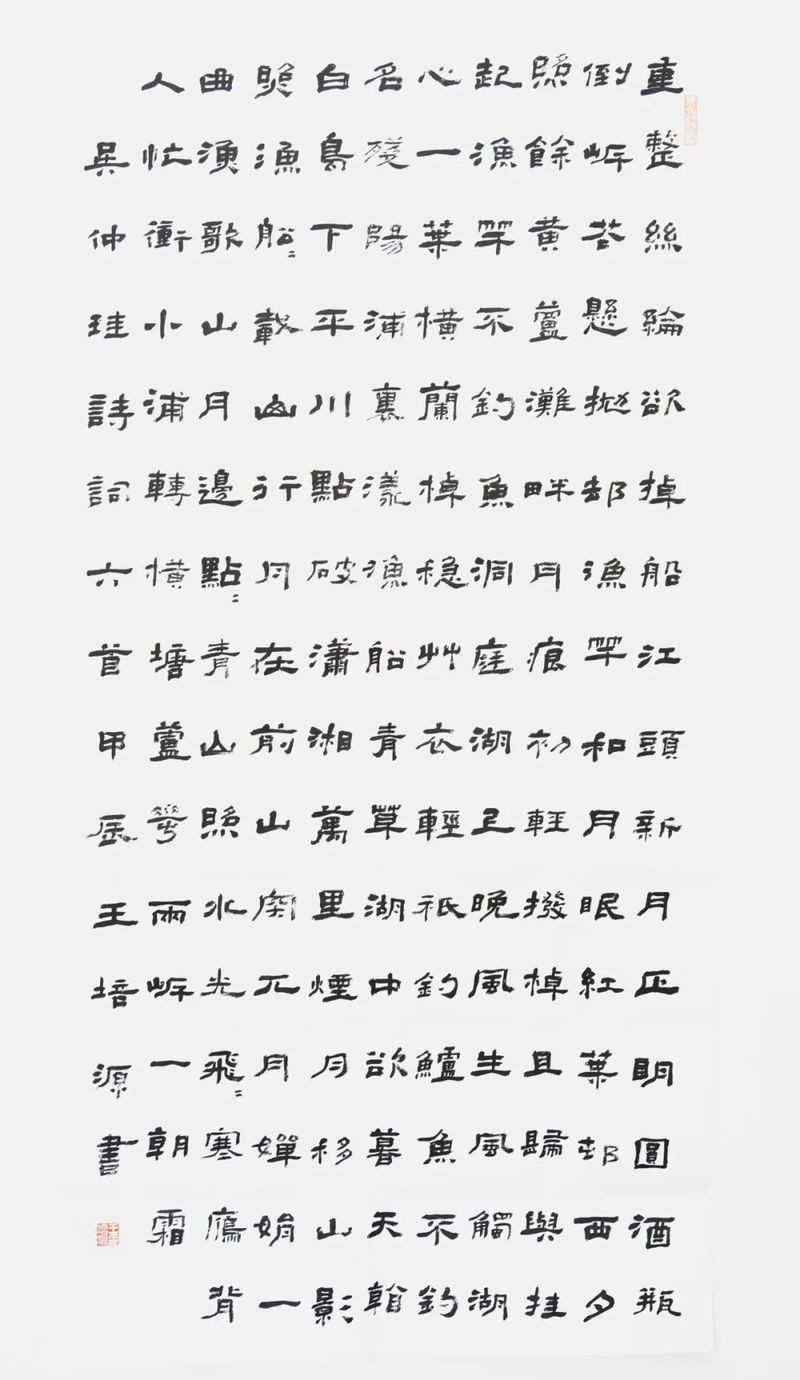 重整絲綸欲掉船江頭新月正明圓酒瓶
倒岸花懸拋却漁竿和月眠紅葉邨西夕
照餘黃蘆灘畔月痕初輕撥棹且歸與挂
起漁竿不釣魚洞庭湖上晚風生風觸湖
心一葉橫蘭棹穩艸衣輕衹釣鱸魚不釣
名殘陽浦裏漾漁船青草湖中欲暮天看
白鳥下平川點破瀟湘萬里煙月移山影
照漁船〻載山行月在前山突兀月嬋娟一
曲漁歌山月邊點〻青山照水光飛〻寒鴈背
人忙衝小浦轉橫塘蘆花兩岸一朝霜
吳仲珪詩詞六首甲辰王培源書